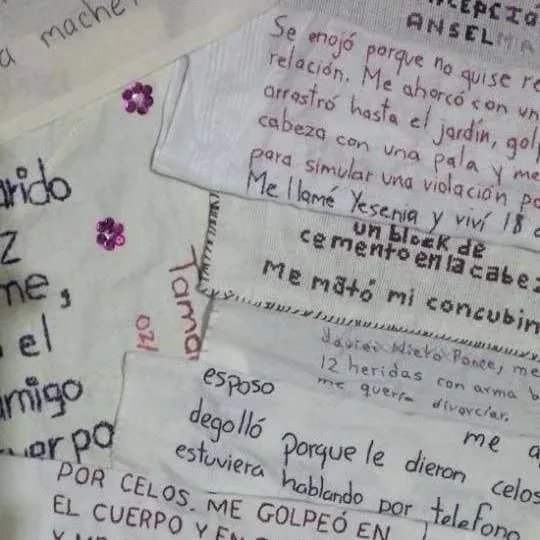 a mache
ANSELMA
Se enojó porque no quise re
relación. Me ahorcó con un
arrastró hasta el jardín, gol
cabeza con una pala y me
para simular una violación po
Me llamé Yesenia y viví 18 a
un block de
cemento en la cabez
me mató mi concubin
Javier Nieto Ponce, me
12 heridas con arma b
me quería divorciar.
arido
z
me,
el
amigo
uerpo
Tama
esposo
me a
degolló porque le dieron celos
estuviera hablando por telefono
POR CELOS. ME GOLPEÓ EN
EL CUERPO Y EN